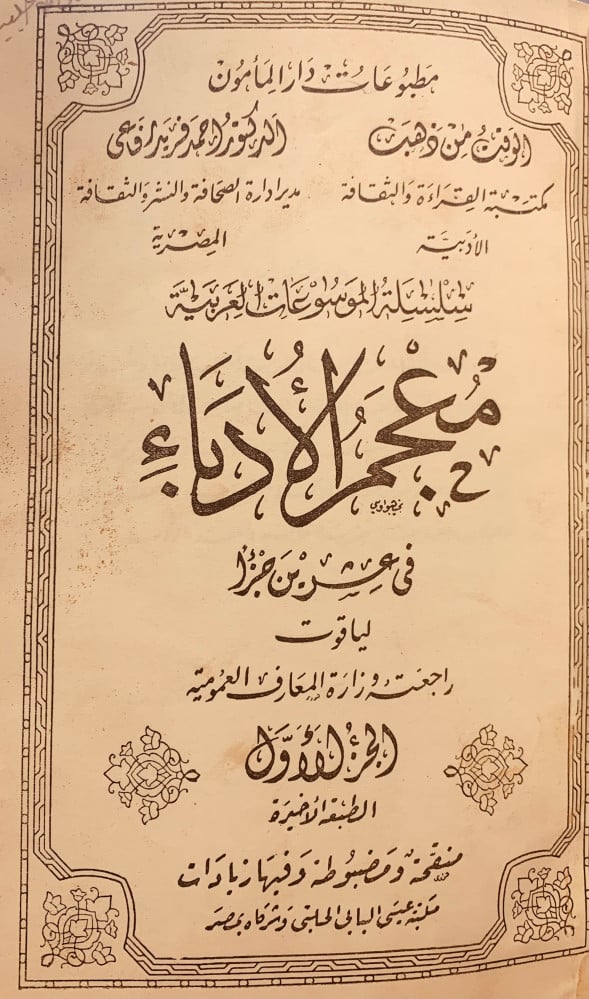 مطبوعات دار المأمون
الوقت من ذهب
الدكتور احمد فريد رفاعي
مكتبة القراءة والثقافة
مدير ادارة الصحافة والنشر والثقافة
الأدبية
المصرية
سلسلة الموسوعات العربية
معجم الأدباء
في عشرين جزءا
لياقوت
راجعته وزارة المعارف العمومية
الجزء الأول
الطبعة الأخيرة
منقحة ومضبوطة وفيها زيادات
مكتبة عيسى البابى الحلبى وشركاه بمصر